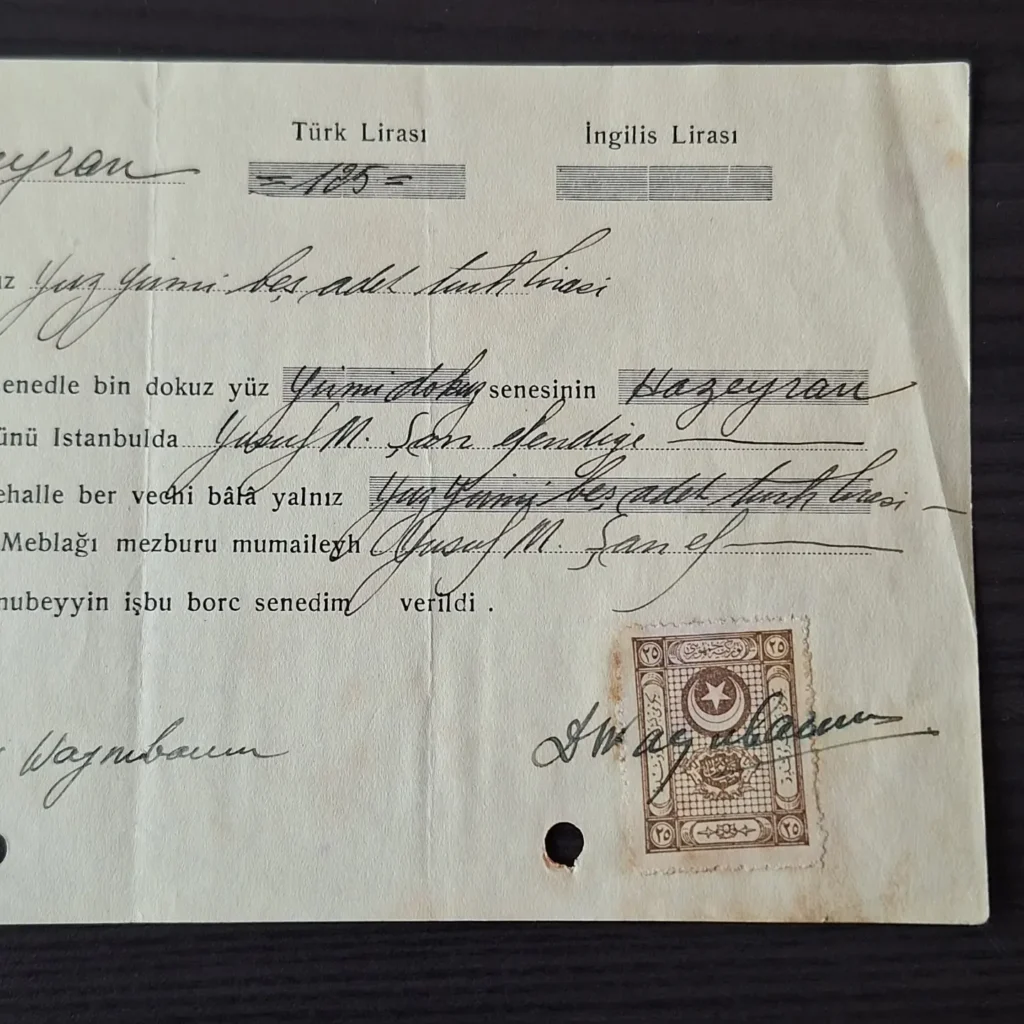 Türk Lirası İngilis Lirası
eyran = 125 =
ız Yuz yirmi beş adet turk lirasi
enedle bin dokuz yüz Yirmi dokuz senesinin Hazeyran
ünü Istanbulda Yusuf M. Şan efendiye
ehalle ber vechi bâlâ yalnız Yuz Yirmi beş adet turk lirasi
Meblağı mezburu mumaileyh Yusuf M. Şan ef
nubeyyin işbu borc senedim verildi .
٢٥ ٢٥
٢٥ ٢٥